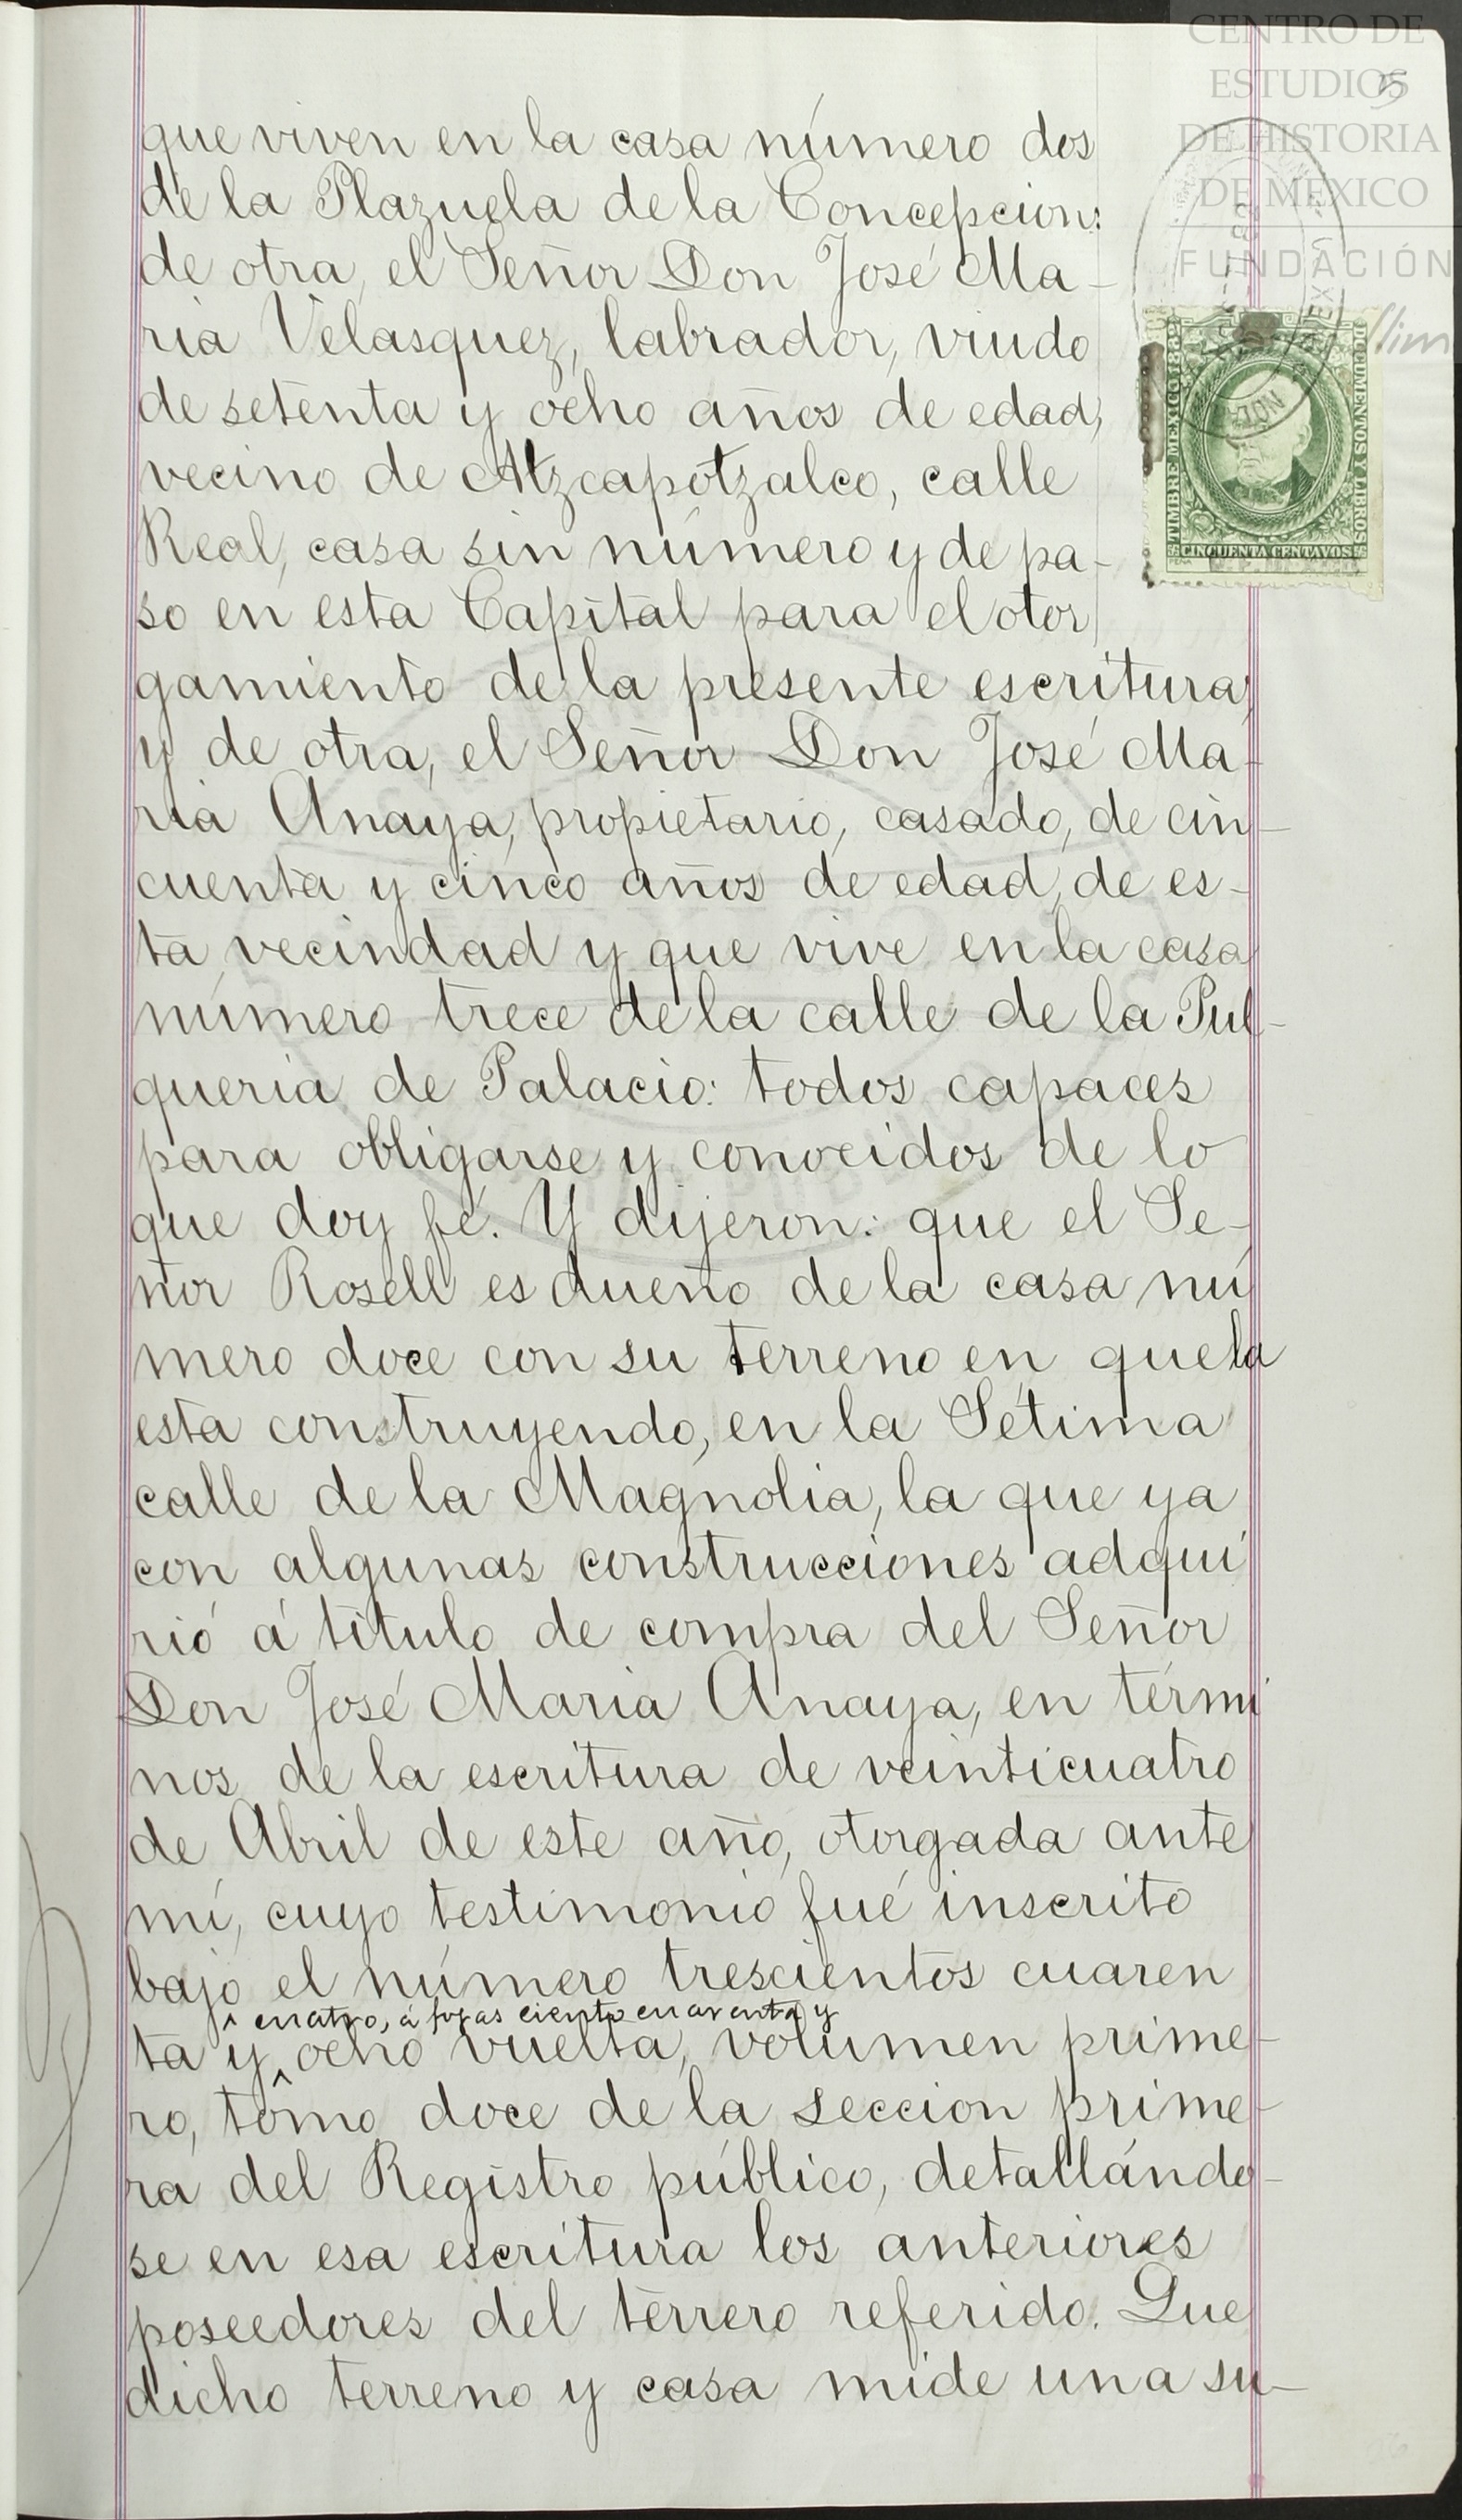 CENTRO DE
ESTUDIOS
DE HISTORIA
DE MEXICO
FUNDACIÓN
Slim
5
TIMBRE MEXICO 1889
DOCUMENTOS Y LIBROS
CINCUENTA CENTAVOS
que viven en la casa número dos
de la Plazuela de la Concepcion:
de otra, el Señor Don José Ma-
ria Velasquez, labrador, viudo
de setenta y ocho años de edad,
vecino de Atzcapotzalco, calle
Real, casa sin número y de pa-
so en esta Capital para el otor
gamiento de la presente escritura;
y de otra, el Señor Don José Ma-
ria Anaya, propietario, casado, de cin-
cuenta y cinco años de edad, de es-
ta vecindad y que vive en la casa
número trece de la calle de la Pul-
queria de Palacio: todos capaces
para obligarse y conocidos de lo
que doy fé. Y dijeron: que el Se-
ñor Rosell es dueño de la casa nú
mero doce con su terreno en que la
esta construyendo, en la Sétima
calle de la Magnolia, la que ya
con algunas construcciones adqui
rió á titulo de compra del Señor
Don José Maria Anaya, en térmi
nos de la escritura de veinticuatro
de Abril de este año, otorgada ante
mí, cuyo testimonio fué inscrito
bajo el número trescientos cuaren
cuatro, á fojas ciento cuarenta y
ta y ocho vuelta, volumen prime-
ro, tomo doce de la seccion prime-
ra del Registro público, detallándo-
se en esa escritura los anteriores
poseedores del terrero referido. Que
dicho terreno y casa mide una su-